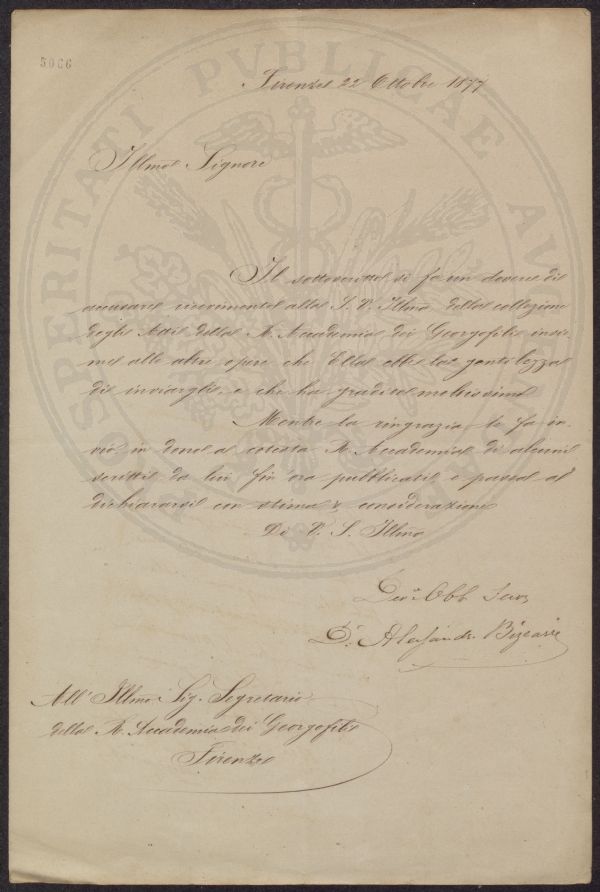 5066
PROSPERITATI PVBLICAE AVGENDAE
Firenze 22 Ottobre 1877
Illmo Signore
Il sottoscritto si fa un dovere di
accusare ricevimento alla S. V. Illma della collezione
degli Atti della R. Accademia dei Georgofili insie-
me alle altre opere che Ella ebbe la gentilezza
di inviargli, e che ha gradite moltissimo
Mentre la ringrazia le fa in-
vio in dono a cotesta R. Accademia di alcuni
scritti da lui fin ora pubblicati e passa a
dichiararsi con stima e considerazione
Di V. S. Illma
Devo Obb Serv
Dr. Alessandro Bizzarri
All' Illmo Sig. Segretario
della R. Accademia dei Georgofili
Firenze